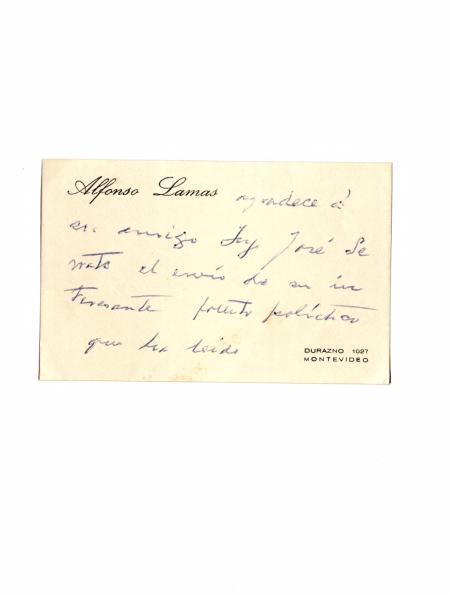 Alfonso Lamas agradece á
su amigo José Se
rrato el envio de su in
teresante político
que ha leido
DURAZNO 1027
MONTEVIDEO